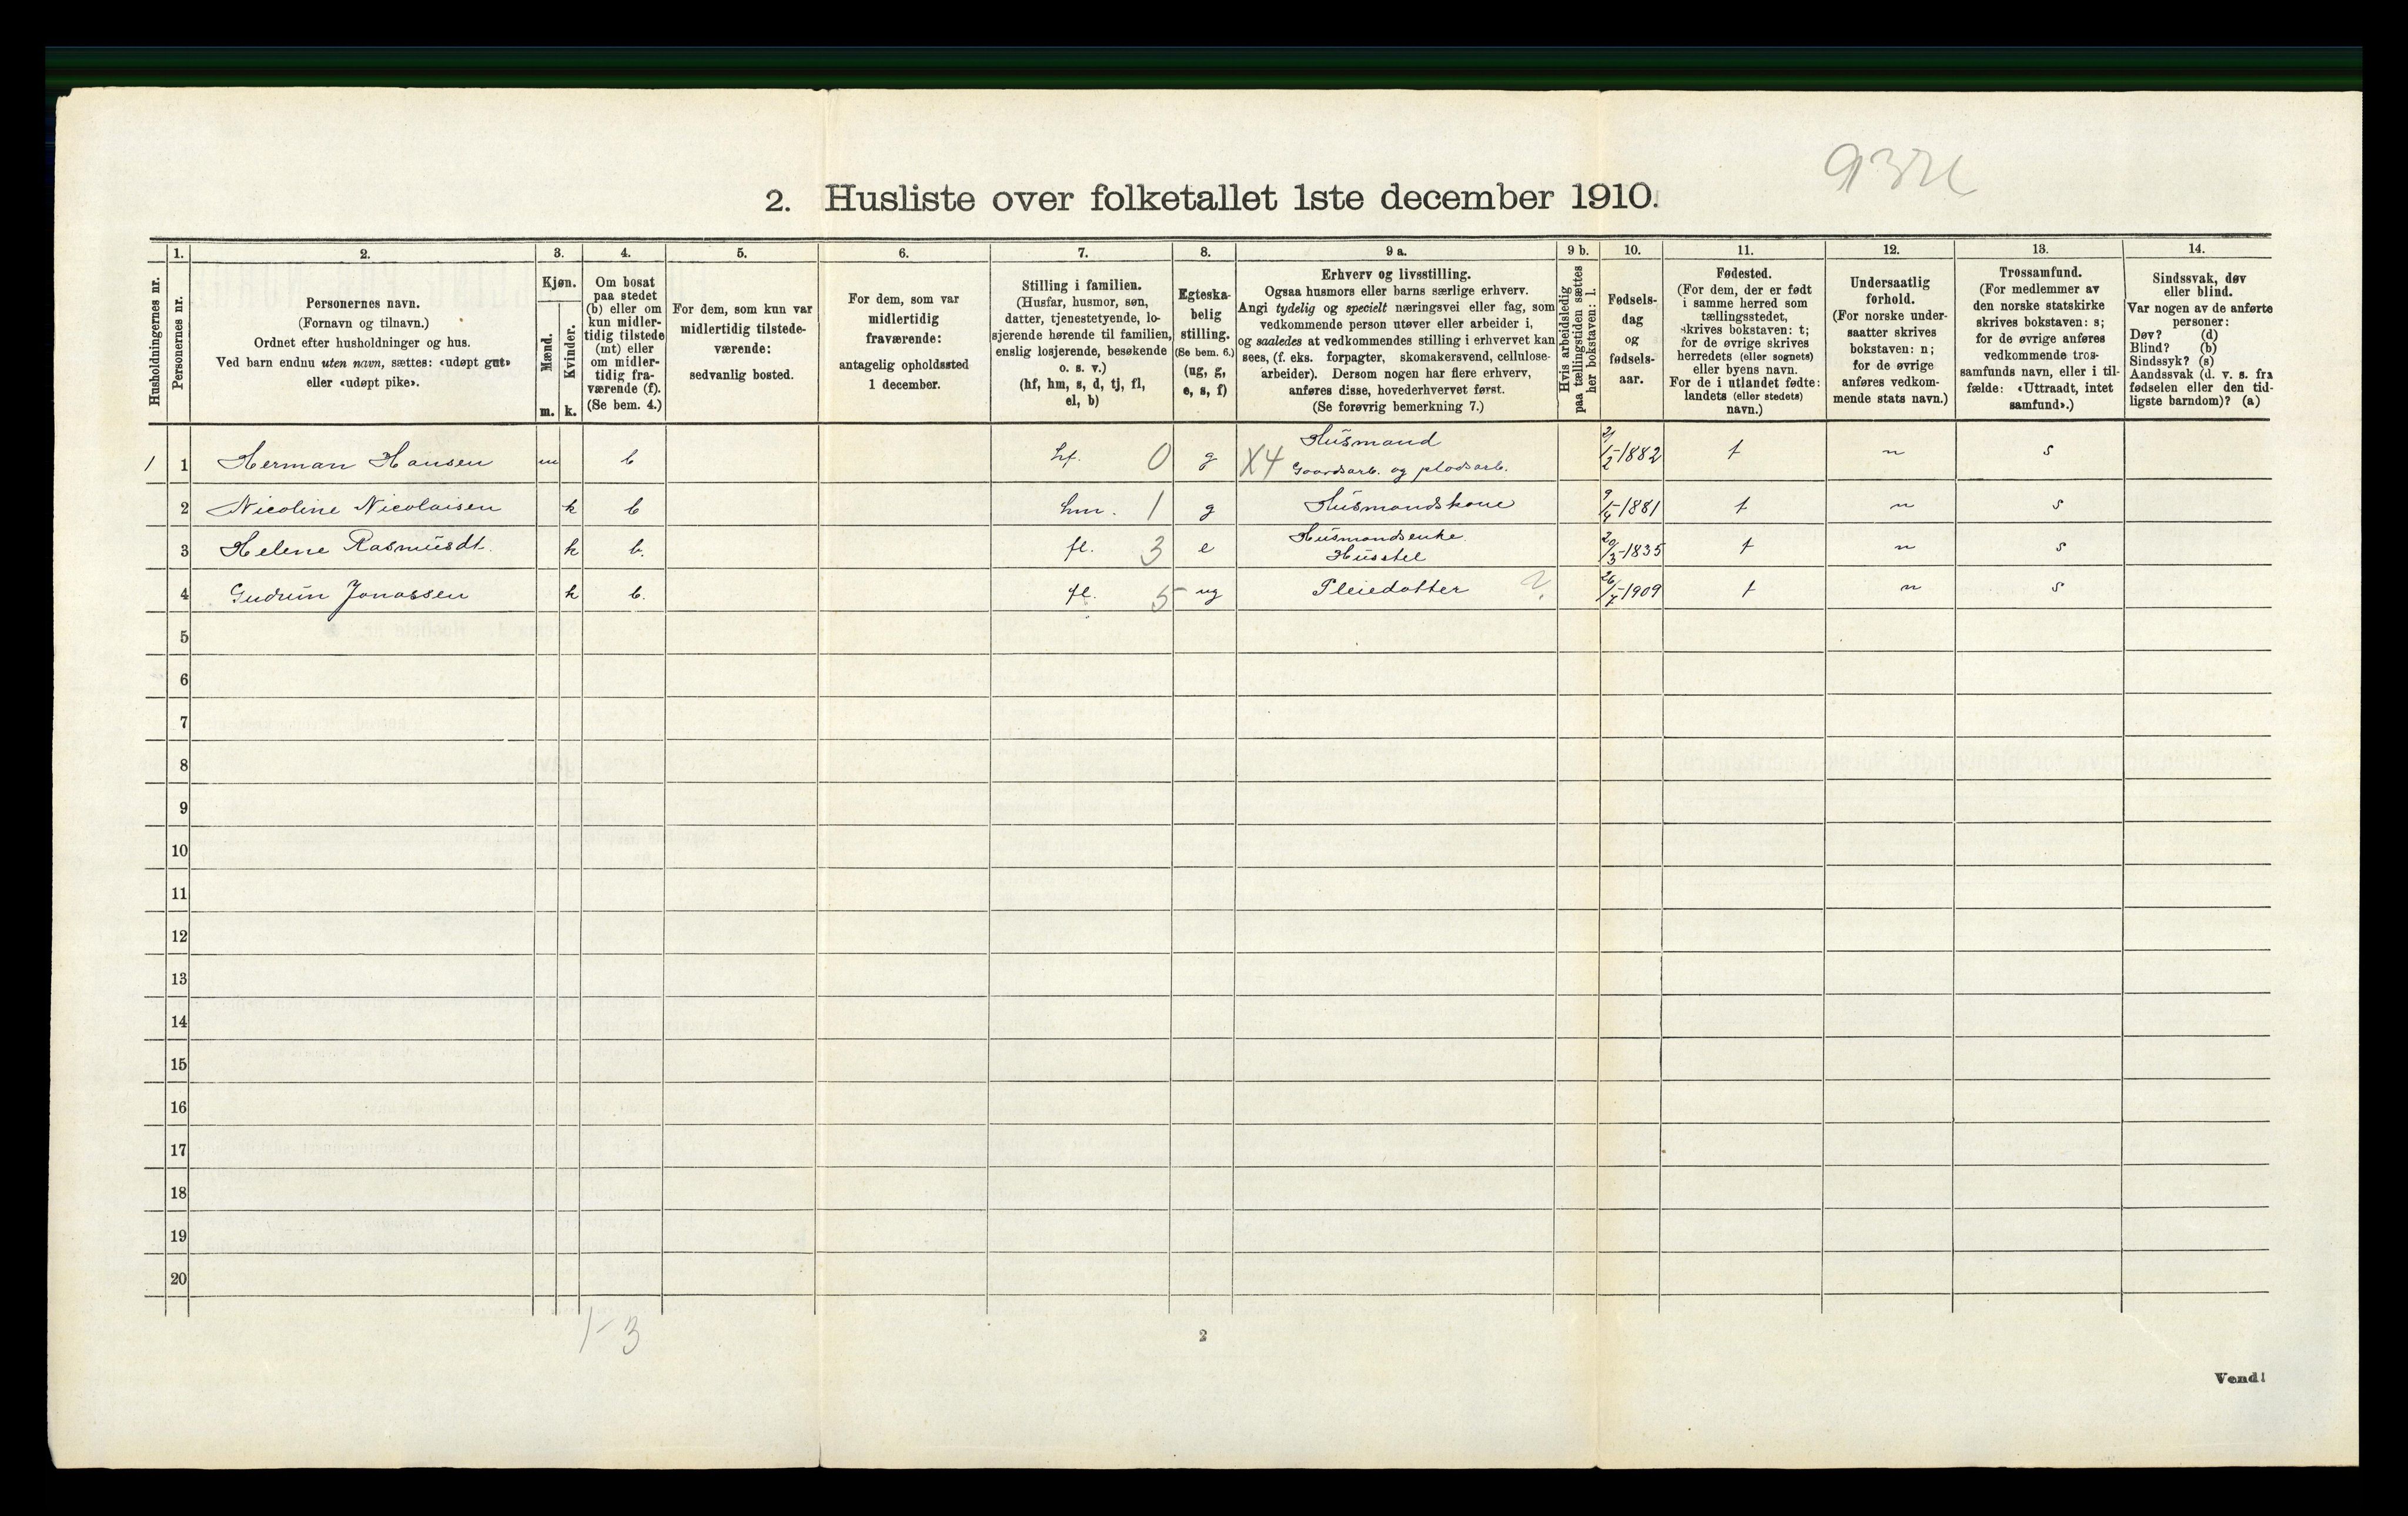 932
2. Husliste over folketallet 1ste december 1910.
Husholdningernes nr.
1.
Personernes nr.
2.
Personernes navn.
(Fornavn og tilnavn.)
Ordnet efter husholdninger og hus.
Ved barn endnu uten navn, sættes: «udøpt gut»
eller «udøpt pike».
3.
Kjøn.
Mænd.
m.
Kvinder.
k.
4.
Om bosat
paa stedet
(b) eller om
kun midler-
tidig tilstede
(mt) eller
om midler-
tidig fra-
værende (f).
(Se bem. 4.)
5.
For dem, som kun var
midlertidig tilstede-
værende:
sedvanlig bosted.
6.
For dem, som var
midlertidig
fraværende:
antagelig opholdssted
1 december.
7.
Stilling i familien.
(Husfar, husmor, søn,
datter, tjenestetyende, lo-
sjerende hørende til familien,
enslig losjerende, besøkende
o. s. v.)
(hf, hm, s, d, tj, fl,
el, b)
8.
Egteska-
belig
stilling.
(Se bem. 6.)
(ug, g,
e, s, f)
9 a.
Erhverv og livsstilling.
Ogsaa husmors eller barns særlige erhverv.
Angi tydelig og specielt næringsvei eller fag, som
vedkommende person utøver eller arbeider i,
og saaledes at vedkommendes stilling i erhvervet kan
sees, (f. eks. forpagter, skomakersvend, cellulose-
arbeider). Dersom nogen har flere erhverv,
anføres disse, hovederhvervet først.
(Se forøvrig bemerkning 7.)
9 b.
Hvis arbeidsledig
paa tællingstiden sættes
her bokstaven: l.
10.
Fødsels-
dag
og
fødsels-
aar.
11.
Fødested.
(For dem, der er født
i samme herred som
tællingsstedet,
skrives bokstaven: t;
for de øvrige skrives
herredets (eller sognets)
eller byens navn.
For de i utlandet fødte:
landets (eller stedets)
navn.)
12.
Undersaatlig
forhold.
(For norske under-
saatter skrives
bokstaven: n;
for de øvrige
anføres vedkom-
mende stats navn.)
13.
Trossamfund.
(For medlemmer av
den norske statskirke
skrives bokstaven: s;
for de øvrige anføres
vedkommende tros-
samfunds navn, eller i til-
fælde: «Uttraadt, intet
samfund».)
14.
Sindssvak, døv
eller blind.
Var nogen av de anførte
personer:
Døv? (d)
Blind? (b)
Sindssyk? (s)
Aandssvak (d. v. s. fra
fødselen eller den tid-
ligste barndom)? (a)
1 1 Herman Hansen m b hf. 0 g X4 Husmand Gaardsarb. og pladsarb. 21/2-1882 t n s
2 Nicoline Nicolaisen k b hm. 1 g Husmandskone 9/4-1881 t n s
3 Helene Rasmusdt. k b. fl. 3 e Husmandsenke. Husstel 20/3-1835 t n s
4 Gudrun Jonassen k b. fl. 5 ug Pleiedatter ? 26/7-1909 t n s
5
6
7
8
9
10
11
12
13
14
15
16
17
18
19
20
1-3
2
Vend!